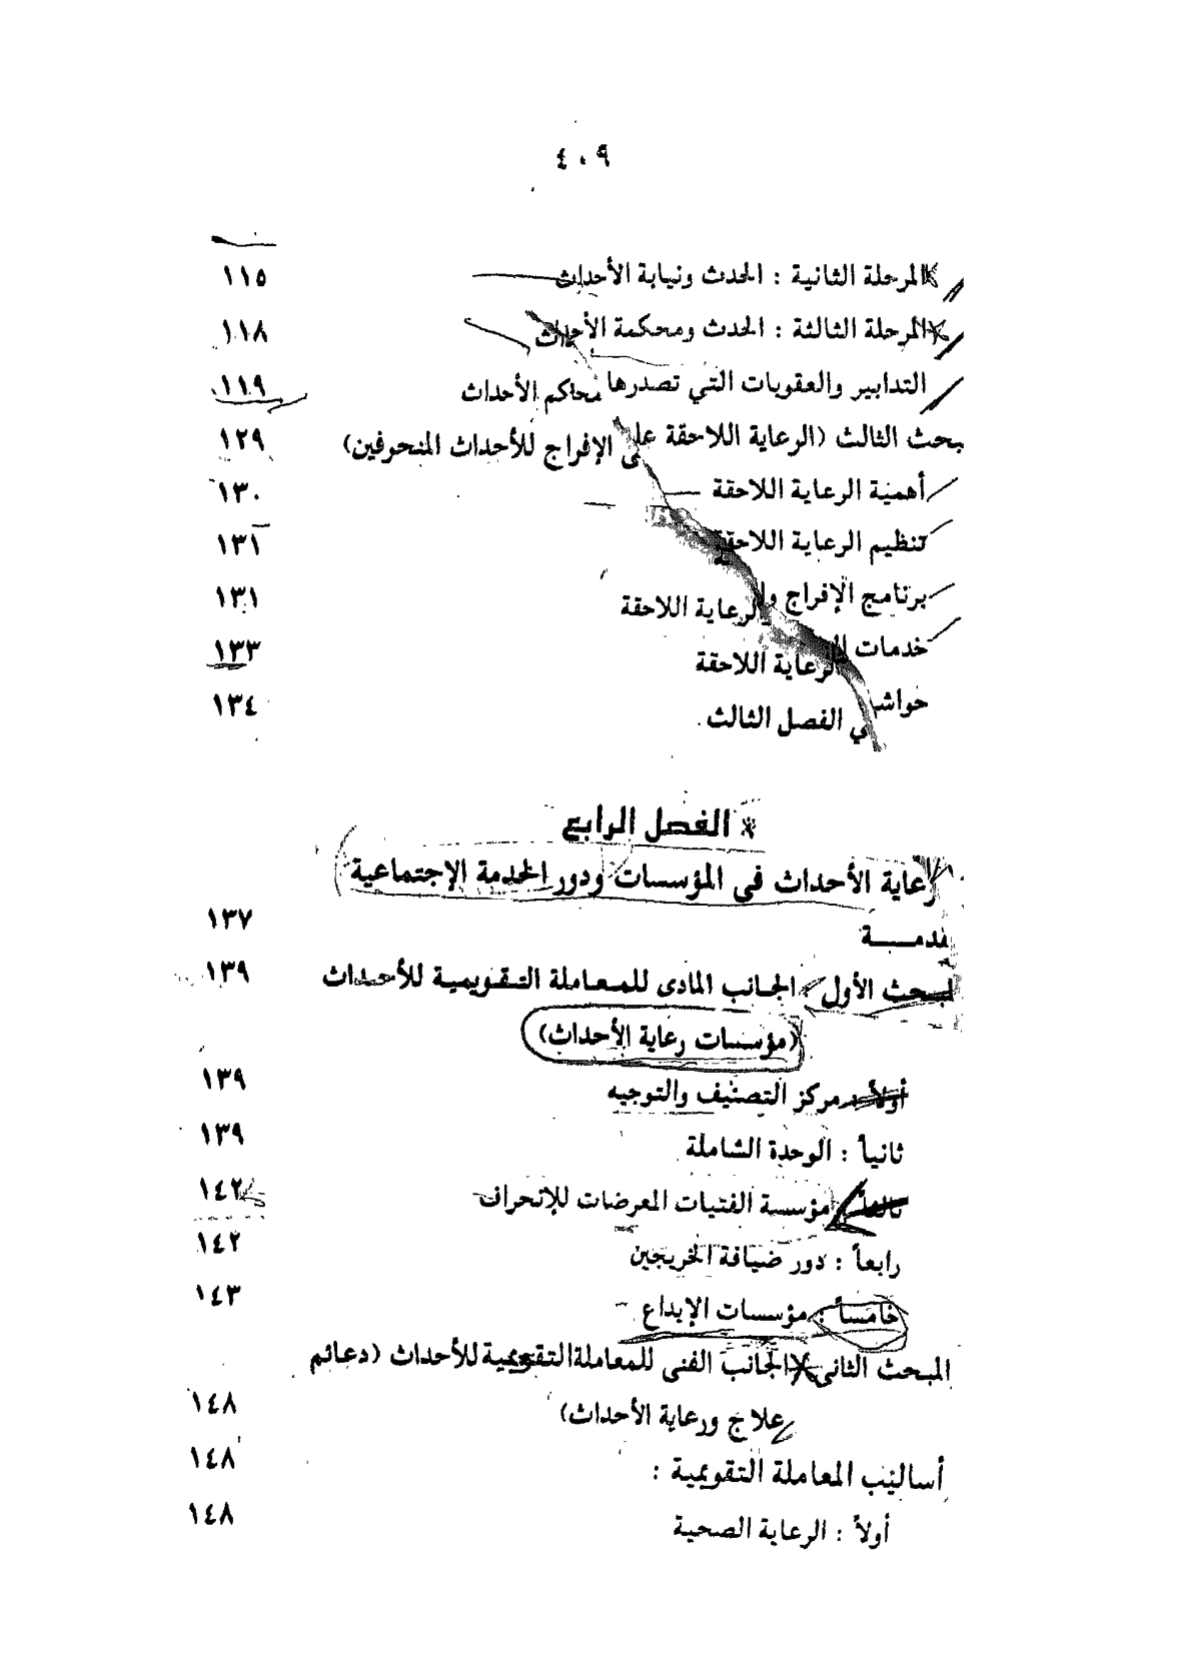 ٤٠٩
المرحلة الثانية : الحدث ونيابة الأحداث ١١٥
المرحلة الثالثة : الحدث ومحكمة الأحداث ١١٨
التدابير والعقوبات التي تصدرها محاكم الأحداث ١١٩
بحث الثالث (الرعاية اللاحقة على الإفراج للأحداث المنحرفين) ١٢٩
أهمية الرعاية اللاحقة ١٣٠
تنظيم الرعاية اللاحقة ١٣١
برنامج الإفراج والرعاية اللاحقة ١٣١
خدمات الرعاية اللاحقة ١٣٣
حواشي الفصل الثالث ١٣٤
* الفصل الرابع
رعاية الأحداث فى المؤسسات ودور الخدمة الإجتماعية
قدمـــة ١٣٧
لمبحث الأول : الجانب المادى للمعاملة التقويمية للأحداث ١٣٩
(مؤسسات رعاية الأحداث)
أولاً : مركز التصنيف والتوجيه ١٣٩
ثانياً : الوحدة الشاملة ١٣٩
ثالثاً : مؤسسة الفتيات المعرضات للإنحراف ١٤٢
رابعاً : دور ضيافة الخريجين ١٤٢
خامساً : مؤسسات الإيداع ١٤٣
المبحث الثانى : الجانب الفنى للمعاملة التقويمية للأحداث (دعائم
علاج ورعاية الأحداث) ١٤٨
أساليب المعاملة التقويمية : ١٤٨
أولاً : الرعاية الصحية ١٤٨